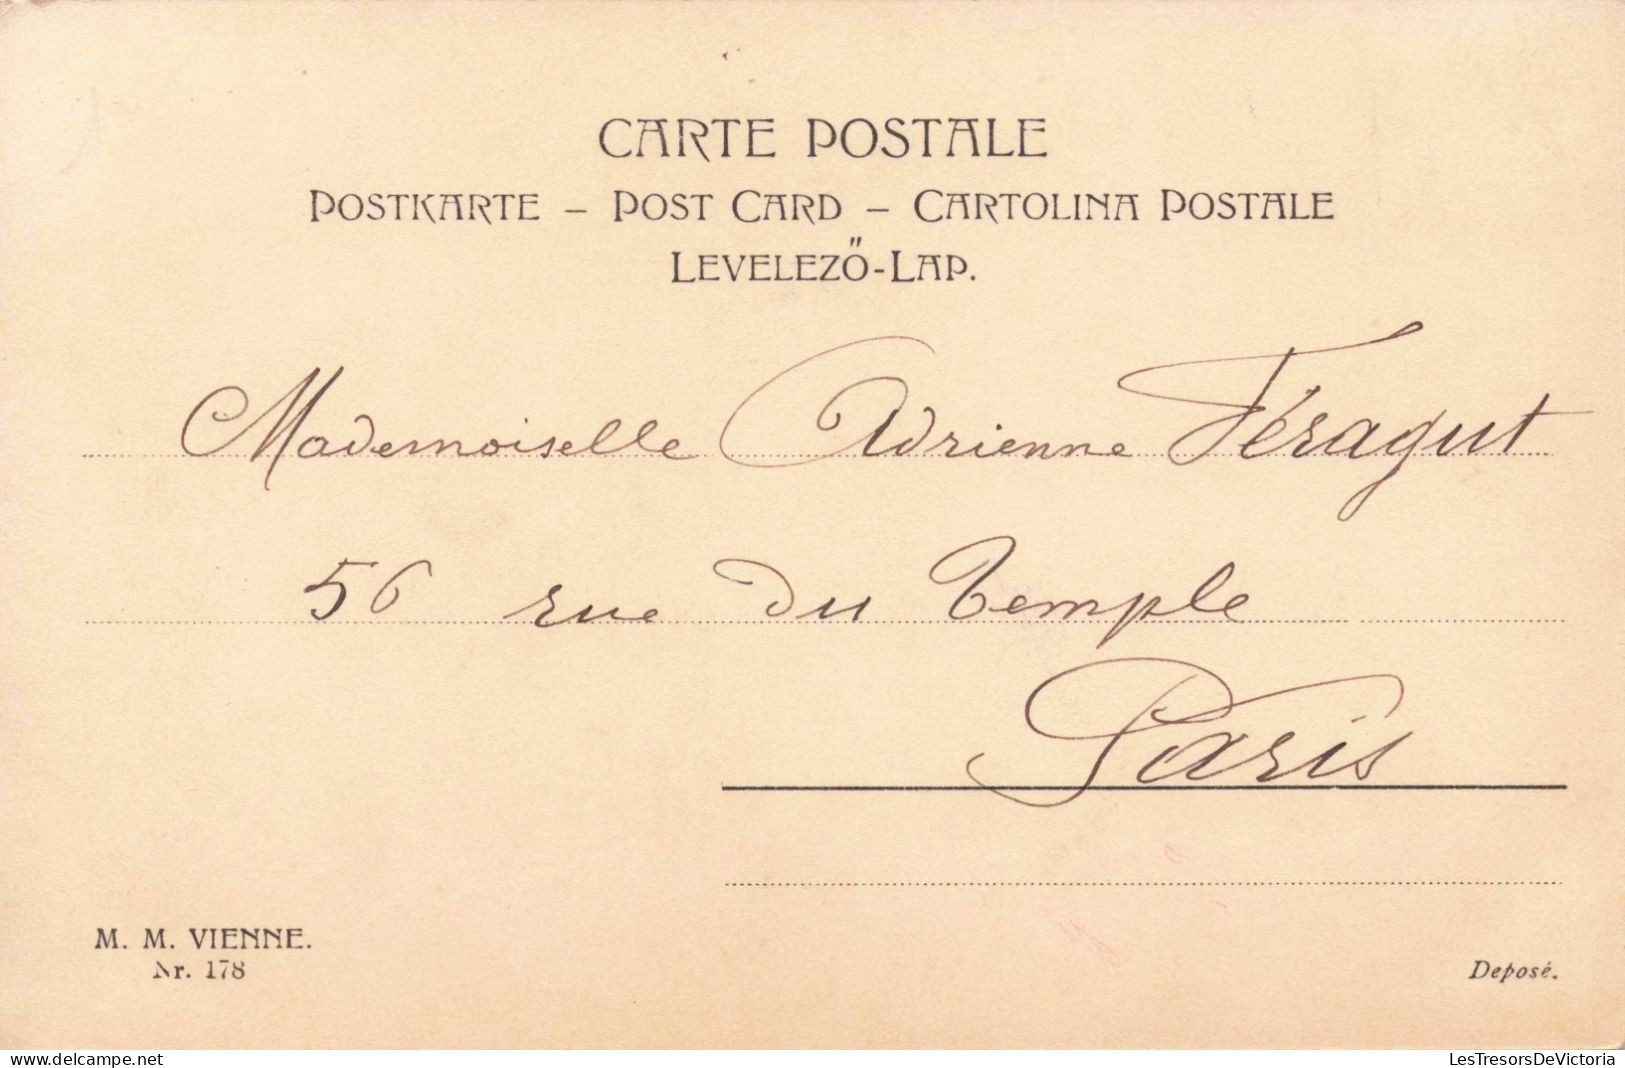 CARTE POSTALE
POSTKARTE – POST CARD – CARTOLINA POSTALE
LEVELEZŐ-LAP.
Mademoiselle Adrienne Féragut
56 rue du Temple
Paris
M. M. VIENNE.
Nr. 178
Deposé.
www.delcampe.net
LesTresorsDeVictoria